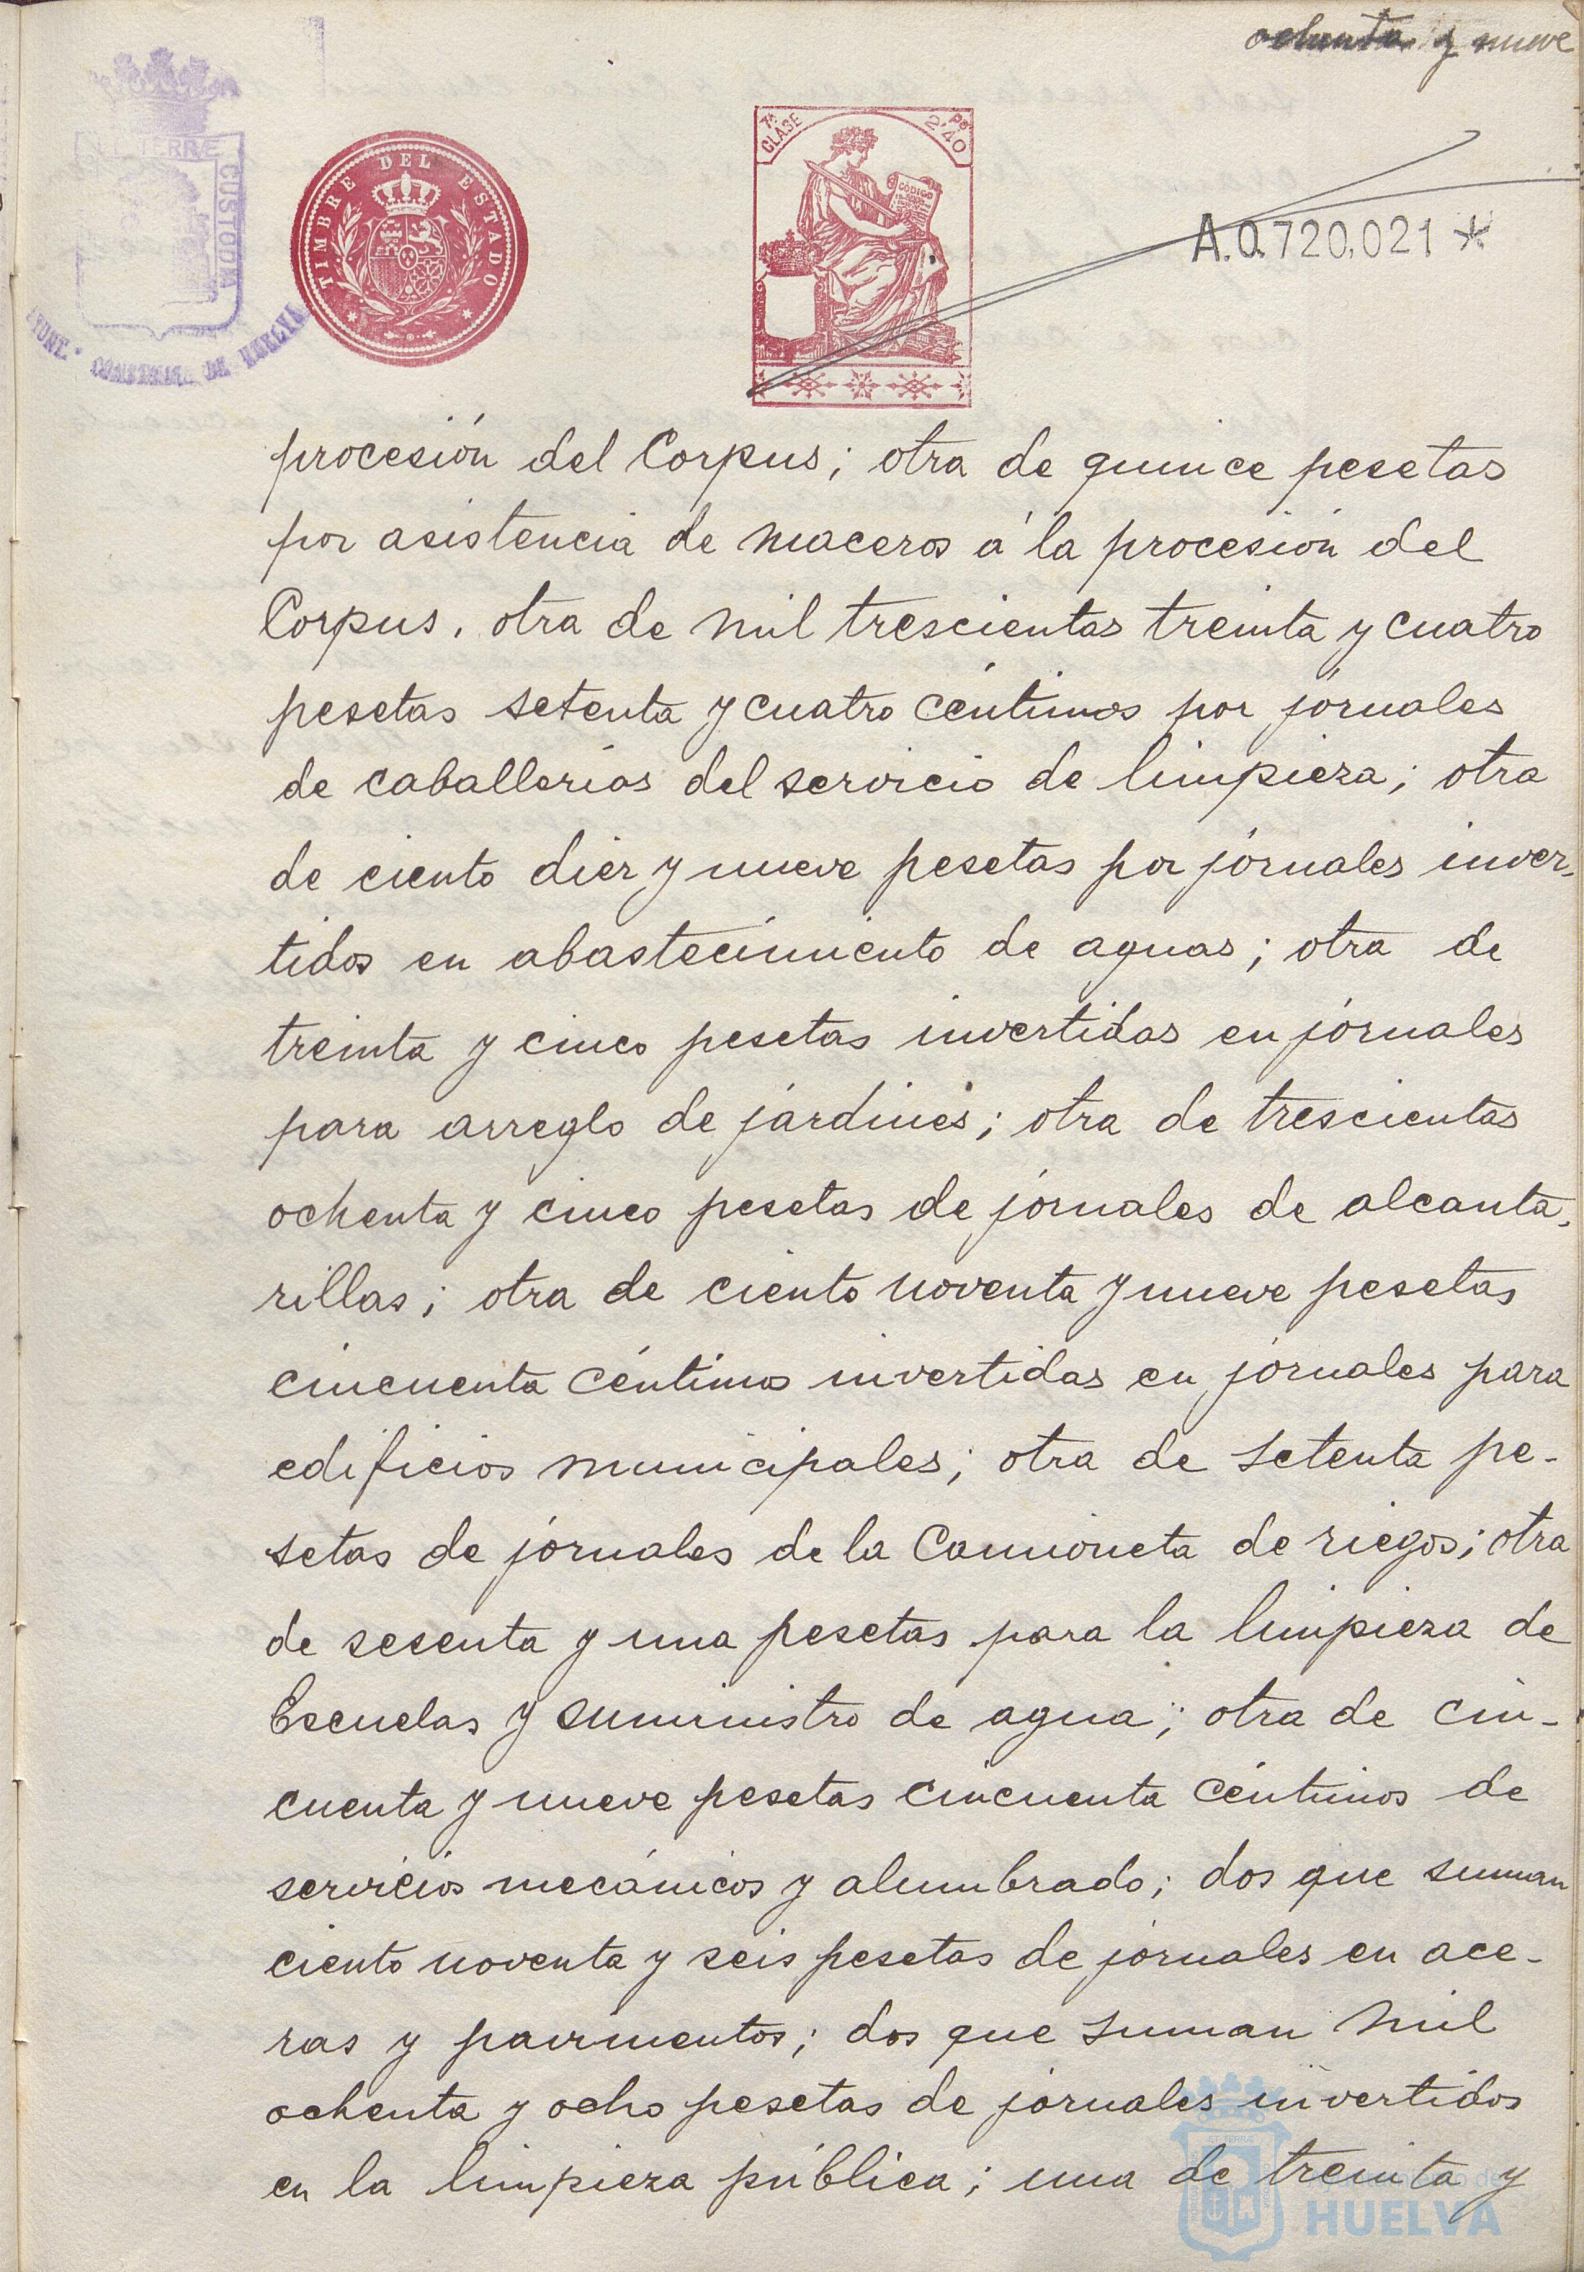 ochenta y nueve
TERRÆ CUSTODIA
AYUNT.º CONSTITUC. DE HUELVA
TIMBRE DEL ESTADO
7ª CLASE
2'40 Ps
CÓDIGO
A.0.720,021 *
procesión del Corpus; otra de quince pesetas
por asistencia de maceros á la procesión del
Corpus, otra de mil trescientas treinta y cuatro
pesetas setenta y cuatro céntimos por jornales
de caballerías del servicio de limpieza; otra
de ciento diez y nueve pesetas por jornales inver-
tidos en abastecimiento de aguas; otra de
treinta y cinco pesetas invertidas en jornales
para arreglo de jardines; otra de trescientas
ochenta y cinco pesetas de jornales de alcanta-
rillas; otra de ciento noventa y nueve pesetas
cincuenta céntimos invertidas en jornales para
edificios municipales; otra de setenta pe-
setas de jornales de la Camioneta de riegos; otra
de sesenta y una pesetas para la limpieza de
Escuelas y suministro de agua; otra de cin-
cuenta y nueve pesetas cincuenta céntimos de
servicios mecánicos y alumbrado; dos que suman
ciento noventa y seis pesetas de jornales en ace-
ras y pavimentos; dos que suman mil
ochenta y ocho pesetas de jornales invertidos
en la limpieza pública; una de treinta y
Ayuntamiento de
HUELVA